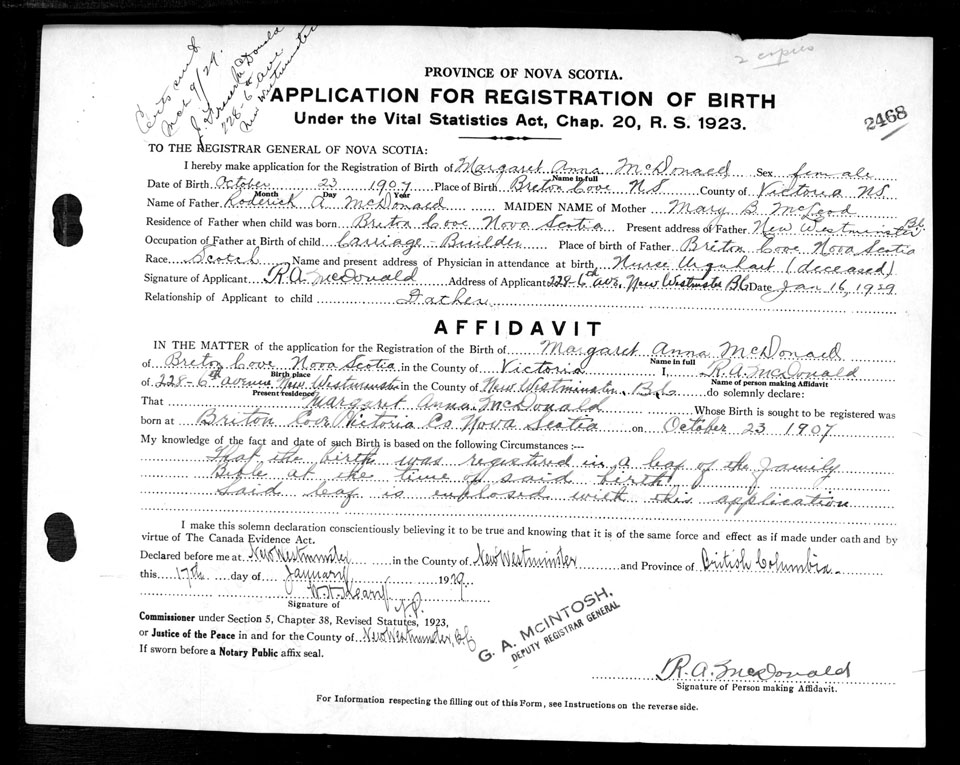 Certs and
Mch 9/29.
J. Fraser McDonald
228-6th Ave
New Westminster
2 copies
PROVINCE OF NOVA SCOTIA.
APPLICATION FOR REGISTRATION OF BIRTH
Under the Vital Statistics Act, Chap. 20, R. S. 1923.
2468
TO THE REGISTRAR GENERAL OF NOVA SCOTIA:
I hereby make application for the Registration of Birth of Margaret Anna McDonald Sex female
Name in full
Date of Birth October 23 1907 Place of Birth Breton Cove N S County of Victoria NS
Month Day Year
Name of Father Roderick A McDonald MAIDEN NAME of Mother Mary B. McLeod
Residence of Father when child was born Briton Cove Nova Scotia Present address of Father New Westminster BC
Occupation of Father at Birth of child Carriage-Builder Place of birth of Father Briton Cove Nova Scotia
Race Scotch Name and present address of Physician in attendance at birth Nurse Urquhart (deceased)
Signature of Applicant R A McDonald Address of Applicant 228-6th ave. New Westminster BC Date Jan 16, 1929
Relationship of Applicant to child Father
AFFIDAVIT
IN THE MATTER of the application for the Registration of the Birth of Margaret Anna McDonald
Name in full
of Breton Cove Nova Scotia in the County of Victoria I, R.A. McDonald
Birth place Name of person making Affidavit
of 228-6th avenue New Westminster in the County of New Westminster, B.C. do solemnly declare:
Present residence
That Margaret Anna McDonald Whose Birth is sought to be registered was
born at Briton Cove Victoria Co Nova Scotia on October 23 1907
My knowledge of the fact and date of such Birth is based on the following Circumstances :---
That the birth was registered in a leaf of the family
Bible at the time of said birth.
Said leaf is enclosed with this application
I make this solemn declaration conscientiously believing it to be true and knowing that it is of the same force and effect as if made under oath and by
virtue of The Canada Evidence Act.
Declared before me at New Westminster in the County of New Westminster and Province of British Columbia
this 17th day of January 1929
J.P.
Signature of
Commissioner under Section 5, Chapter 38, Revised Statutes, 1923,
or Justice of the Peace in and for the County of New Westminster, B.C.
If sworn before a Notary Public affix seal.
G. A. MCINTOSH,
DEPUTY REGISTRAR GENERAL
R.A. McDonald
Signature of Person making Affidavit.
For Information respecting the filling out of this Form, see Instructions on the reverse side.